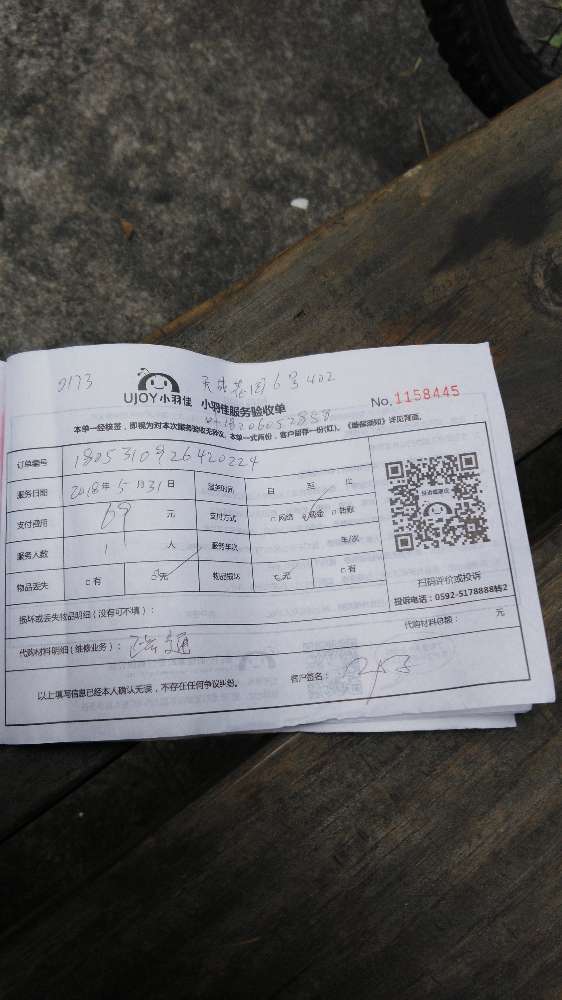 2173
6号402
UJOY小羽佳 小羽佳服务验收单 No.1158445
本单一经核签，即视为对本次服务验收无异议。本单一式两份，客户留存一份(红)。《维保须知》详见背面。
订单编号
服务日期 2018年5月31日 服务时间 自 至 止
支付费用 69 元 支付方式 □网络 现金 □转账
服务人数 1 人 服务车次 车/次
物品丢失 □有 无 物品损坏 无 □有
扫码评价或投诉
投诉电话：0592-5178888转2
损坏或丢失物品明细（没有可不填）：
代购材料明细（维修业务）： 代购材料总额： 元
以上填写信息已经本人确认无误，不存在任何争议纠纷。 客户签名：